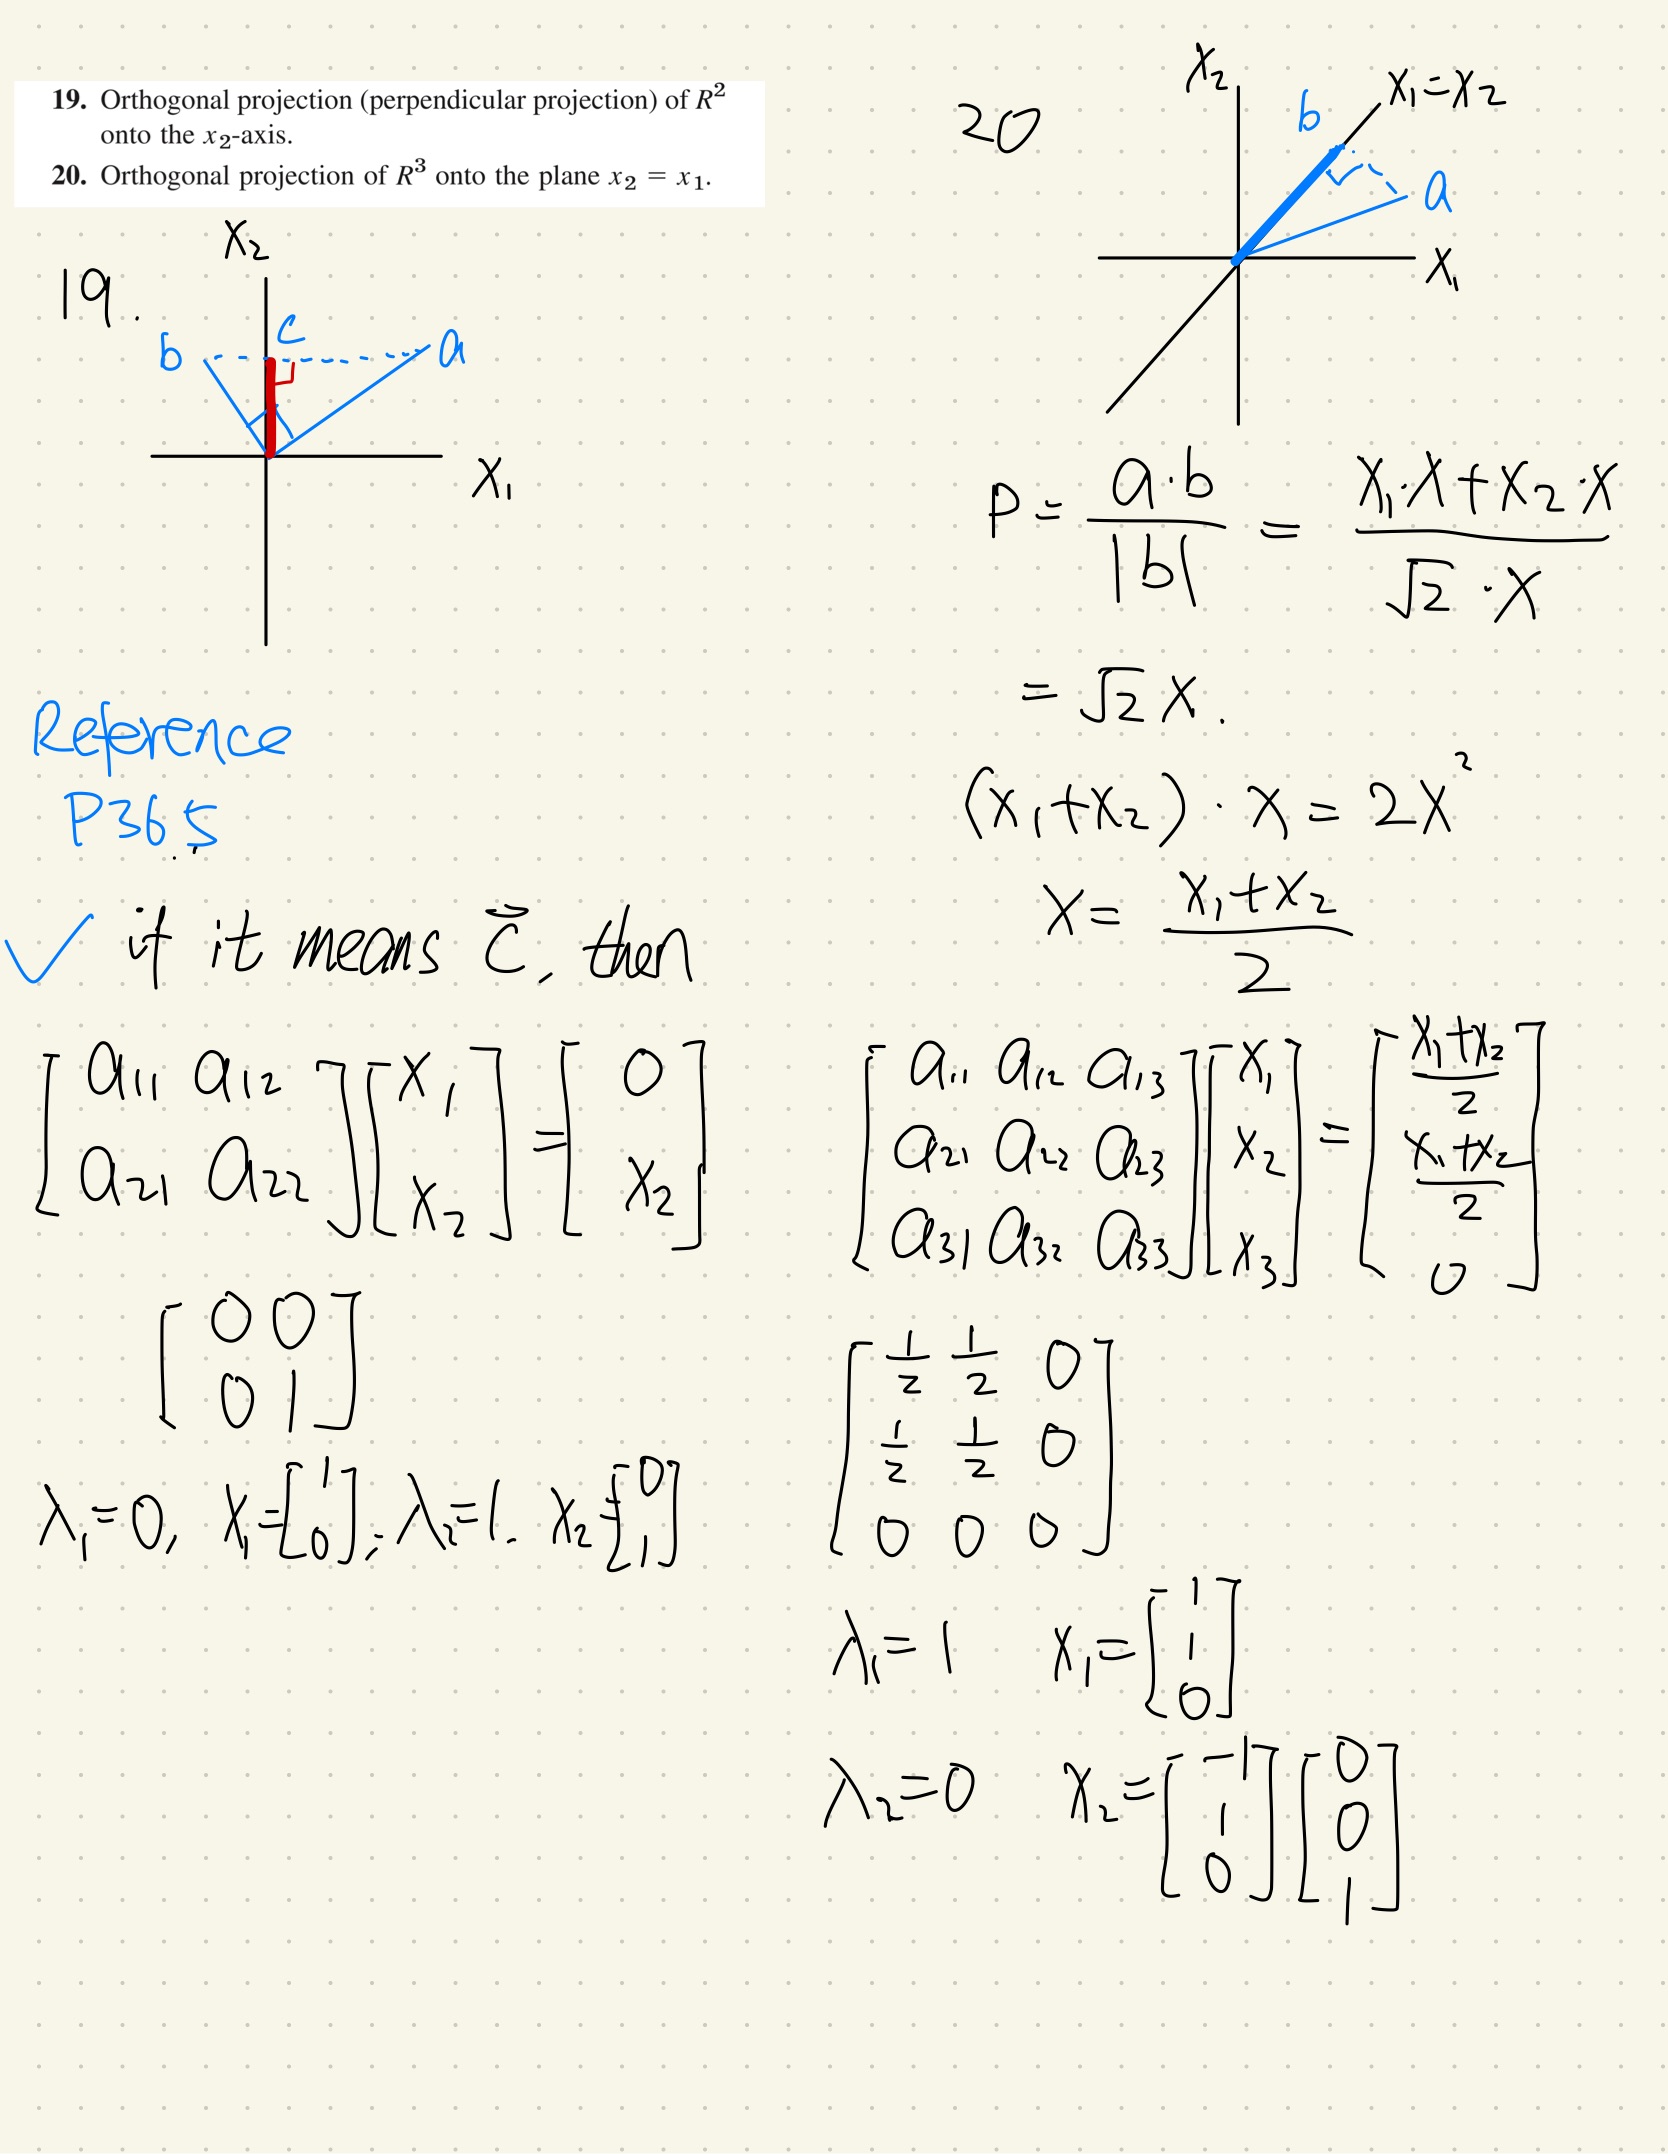 19. Orthogonal projection (perpendicular projection) of R²
onto the x₂-axis.
20. Orthogonal projection of R³ onto the plane x₂ = x₁.
19.
x₂
b
c
a
x₁
Reference
P365
✓ if it means c̄, then
[a₁₁ a₁₂; a₂₁ a₂₂] [x₁; x₂] = [0; x₂]
[0 0; 0 1]
λ₁=0, x₁=[1; 0]; λ₂=1. x₂=[0; 1]
20
x₂
x₁=x₂
b
a
x₁
P = a·b / |b| = (x₁·x+x₂·x) / (√2·x)
= √2 x.
(x₁+x₂)·x = 2x²
x = (x₁+x₂) / 2
[a₁₁ a₁₂ a₁₃; a₂₁ a₂₂ a₂₃; a₃₁ a₃₂ a₃₃] [x₁; x₂; x₃] = [(x₁+x₂)/2; (x₁+x₂)/2; 0]
[1/2 1/2 0; 1/2 1/2 0; 0 0 0]
λ₁=1 x₁=[1; 1; 0]
λ₂=0 x₂=[-1; 1; 0] [0; 0; 1]